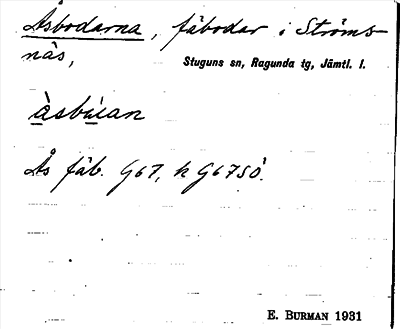 Åsbodarna, fäbodar i Ströms-
näs,
Stuguns sn, Ragunda tg, Jämtl. l.
àsbùan
Ås fäb. G67, k G67SÖ.
E. BURMAN 1931